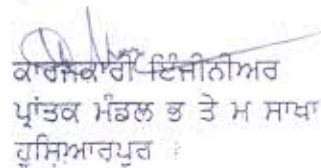 ਕਾਰਜਕਾਰੀ ਇੰਜੀਨੀਅਰ
ਪ੍ਰਾਂਤਕ ਮੰਡਲ ਭ ਤੇ ਮ ਸਾਖਾ
ਹੁਸਿਆਰਪੁਰ